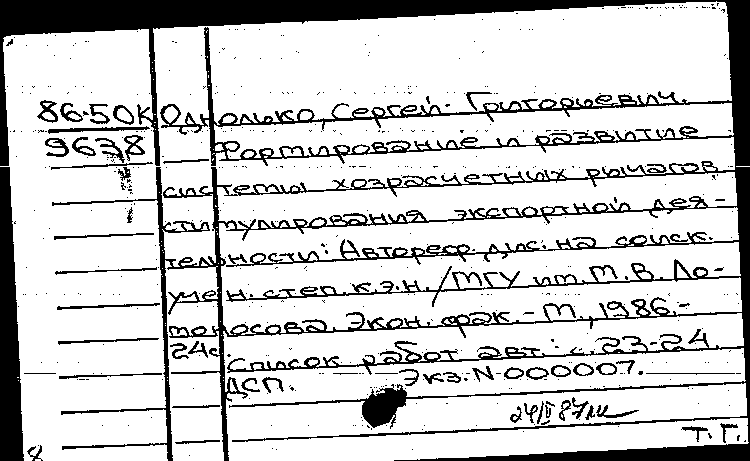 86-50К Однолько, Сергей Григорьевич.
9638 Формирование и развитие
системы хозрасчетных рычагов
стимулирования экспортной дея-
тельности: Автореф. дис. на соиск.
учен. степ. к.э.н. / МГУ им. М.В. Ло-
моносова. Экон. фак. - М., 1986.-
24с.
Список работ авт.: с. 23-24.
ДСП. Экз. N 000007.
Т. Г.
8